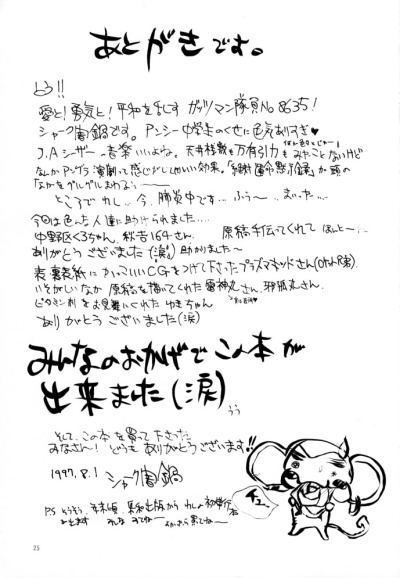 あとがきです。
とう!!
愛と!勇気と!平和を乱す ガッツマン隊員No8635!
シャーク闇鍋です。アンシー中学生のくせに色気ありすぎ♥
J.Aシーザーの音楽いいよね。天井桟敷も万有引力もみたことないけど
なんかアングラ演劇って感じがしてカッコいい効果。「絶対運命黙示録」が頭の
なかをグルグルまわるぅ〜
ところで わし、今、肺炎中です…ふぅ〜…まいった…
今回は色んな人達に助けられました…
中野区くろちゃん、秋吉164さん、原稿手伝ってくれて ほんと〜
ありがとうございました(涙)助かりました〜
表裏表紙にかっこいいCGをつけて下さったプラズマキッドさん
いそがしいなか 原稿を描いてくれた雷神丸さん、邪風丸さん、
ビタミン剤をお見舞にくれた ゆきちゃん
ありがとうございました(涙)
みんなのおかげで この本が
出来ました(涙)
うう
そして、この本を買って下さった
みなさん!どうもありがとうございます!!
1997.8.1 シャーク闇鍋
チュー
PS そうそう、年末頃、
出ます
25